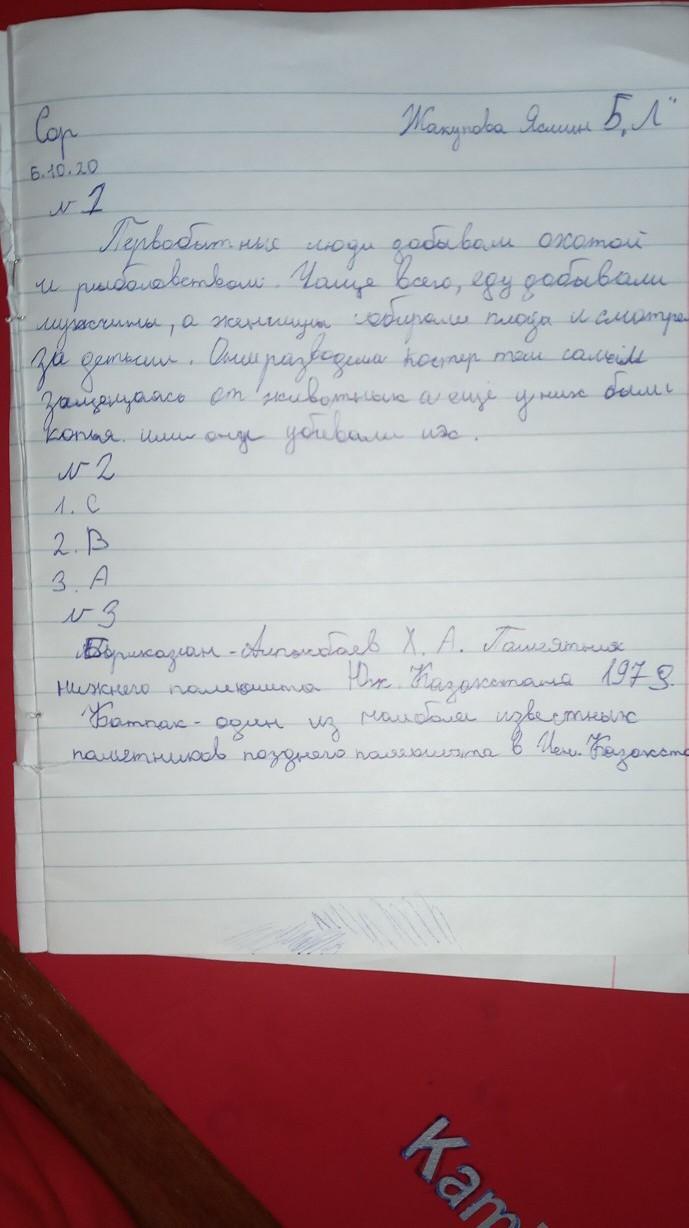 Сор
Жакупова Ясмин 5 "Л"
6.10.20
№ 1
Первобытные люди добывали охотой
и рыболовством. Чаще всего, еду добывали
мужчины, а женщины собирали плоды и смотре
за детьми. Они разводили костер тем самым
защищаясь от животных а ещё у них были
копья. ими они убивали их.
№ 2
1. C
2. B
3. A
№ 3
- Алпысбаев Х. А. Памятник
нижнего палеолита Юж. Казахстана 1979.
Батпак - один из наиболее известных
памятников позднего палеолита в Цен. Казахста
Kam